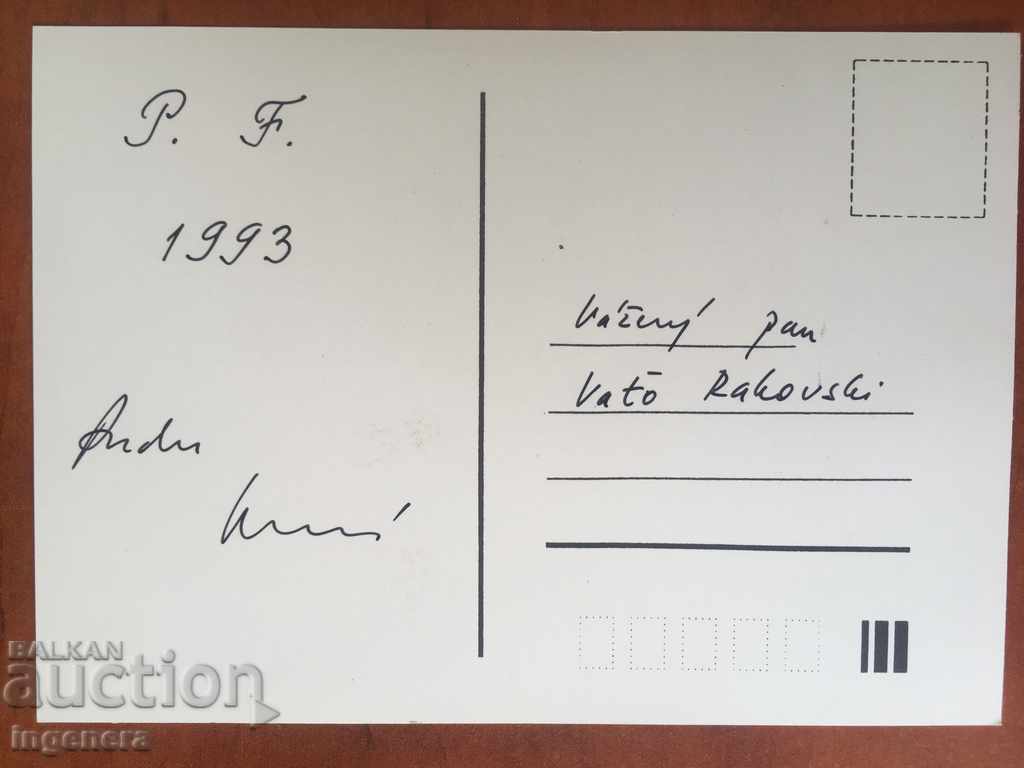 P. F.
1993
Vážený pan
Vaťo Rakovski
BALKAN
auction
ingenera